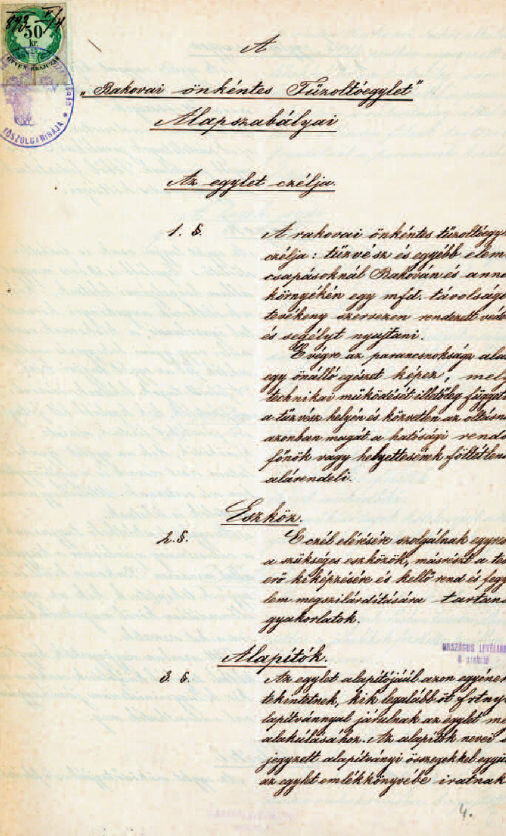 893 V/17
50
kr.
FŐSZOLGABIRÁJA
A
„Rakovai önkéntes Tűzoltóegylet"
Alapszabályai
Az egylet czélja.
1. §.
A rakovai önkéntes tűzoltóegy
czélja: tűzvész és egyébb elem
csapásoknál Rakován és anna
környékén egy mfd. távolságr
tevékeny szervezem rendezett véde
és segélyt nyujtani.
E végre az parancsnoksága ala
egy önálló egészet képez, mely
technikai működését illetőleg függet
a tűzvész helyén és közvetlen az oltásná
azonban magát a hatósági rendő
főnök vagy helyettesének föltétlen
alárendeli.
Eszköz.
2. §.
E czél elérésére szolgálnak egyré
a szükséges eszközök, másrészt a tes
erő kiképzésére és kellő rend és fegy
lem megszilárditására tartand
gyakorlatok.
ORSZÁGOS LEVÉLTÁR
Alapitók.
3 §.
Az egylet alapitójául azon egyének
tekintetnek, kik legalább öt frtnyi
lapitvánnyal járulnak az egylet me
alakulásához. Az alapitók nevei
jegyzett alapitványi összegekkel együ
az egylet emlékkönyvébe iratnak
4.